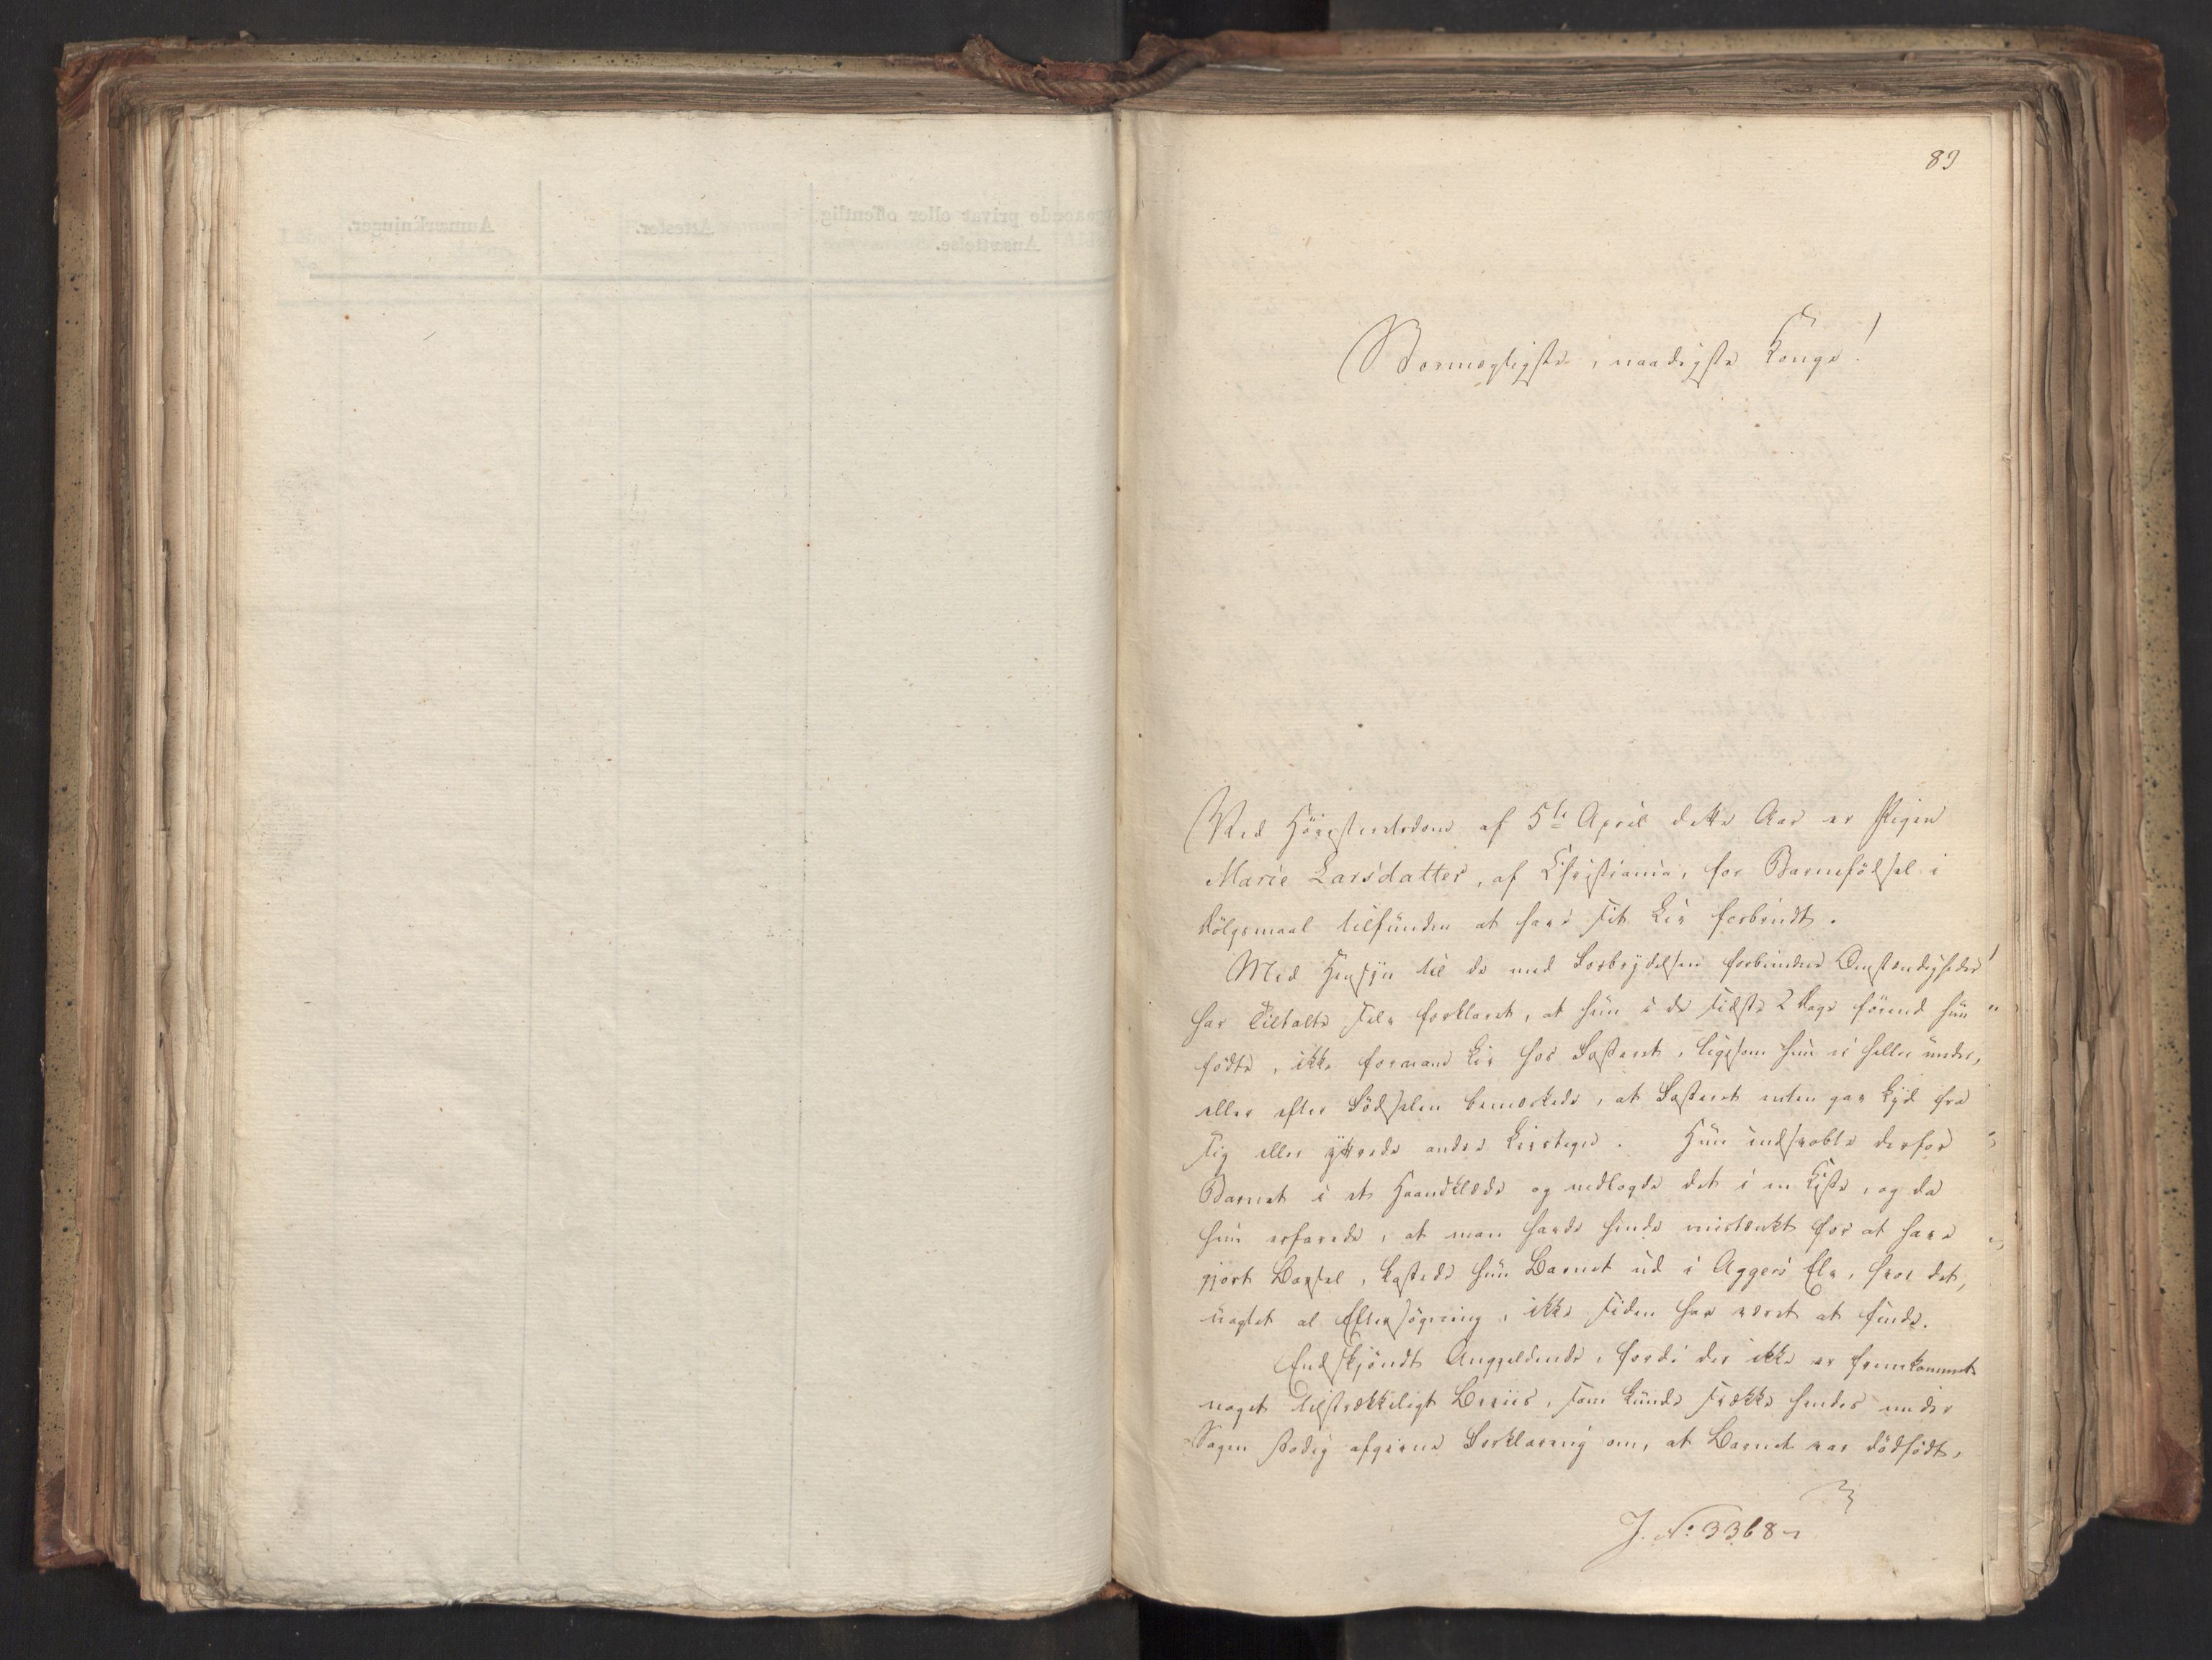 83
Stormægtigste, naadigste Konge!
Ved Höiesteretsdom af 5te April dette Aar er Pigen
Marie Larsdatter, af Christiania, for Barnefödsel i
Dölgsmaal tilfunden at have sit Liv forbrudt.
Med Hensyn til de med Forbrydelsen forbundne Omstændigheder
har Tiltalte selv forklaret, at hun i de sidste 2 Dage förend hun
födte, ikke fornam Liv hos Fosteret, ligesom hun ei heller under,
eller efter Födselen bemærkede, at Fosteret enten gav Lyd fra
sig eller yttrede andre Livstegn. Hun indsvøbte derfor
Barnet i et Haandklæde og nedlagde det i en Kiste, og da
hun erfarede, at man havde hende mistænkt for at have
gjort Barsel, kastede hun Barnet ud i Aggers Elv, hvor det,
uagtet al Eftersögning, ikke siden har været at finde.
Endskjöndt Angjeldende, fordi der ikke er fremkommet
noget tilstrækkeligt Beviis, som kunde svække hendes under
Sagen stadig afgivne Forklaring om, at Barnet var dödfödt,
J. No 3368
Anmærkninger.
Attester.
privat eller offentlig
Ansættelse.